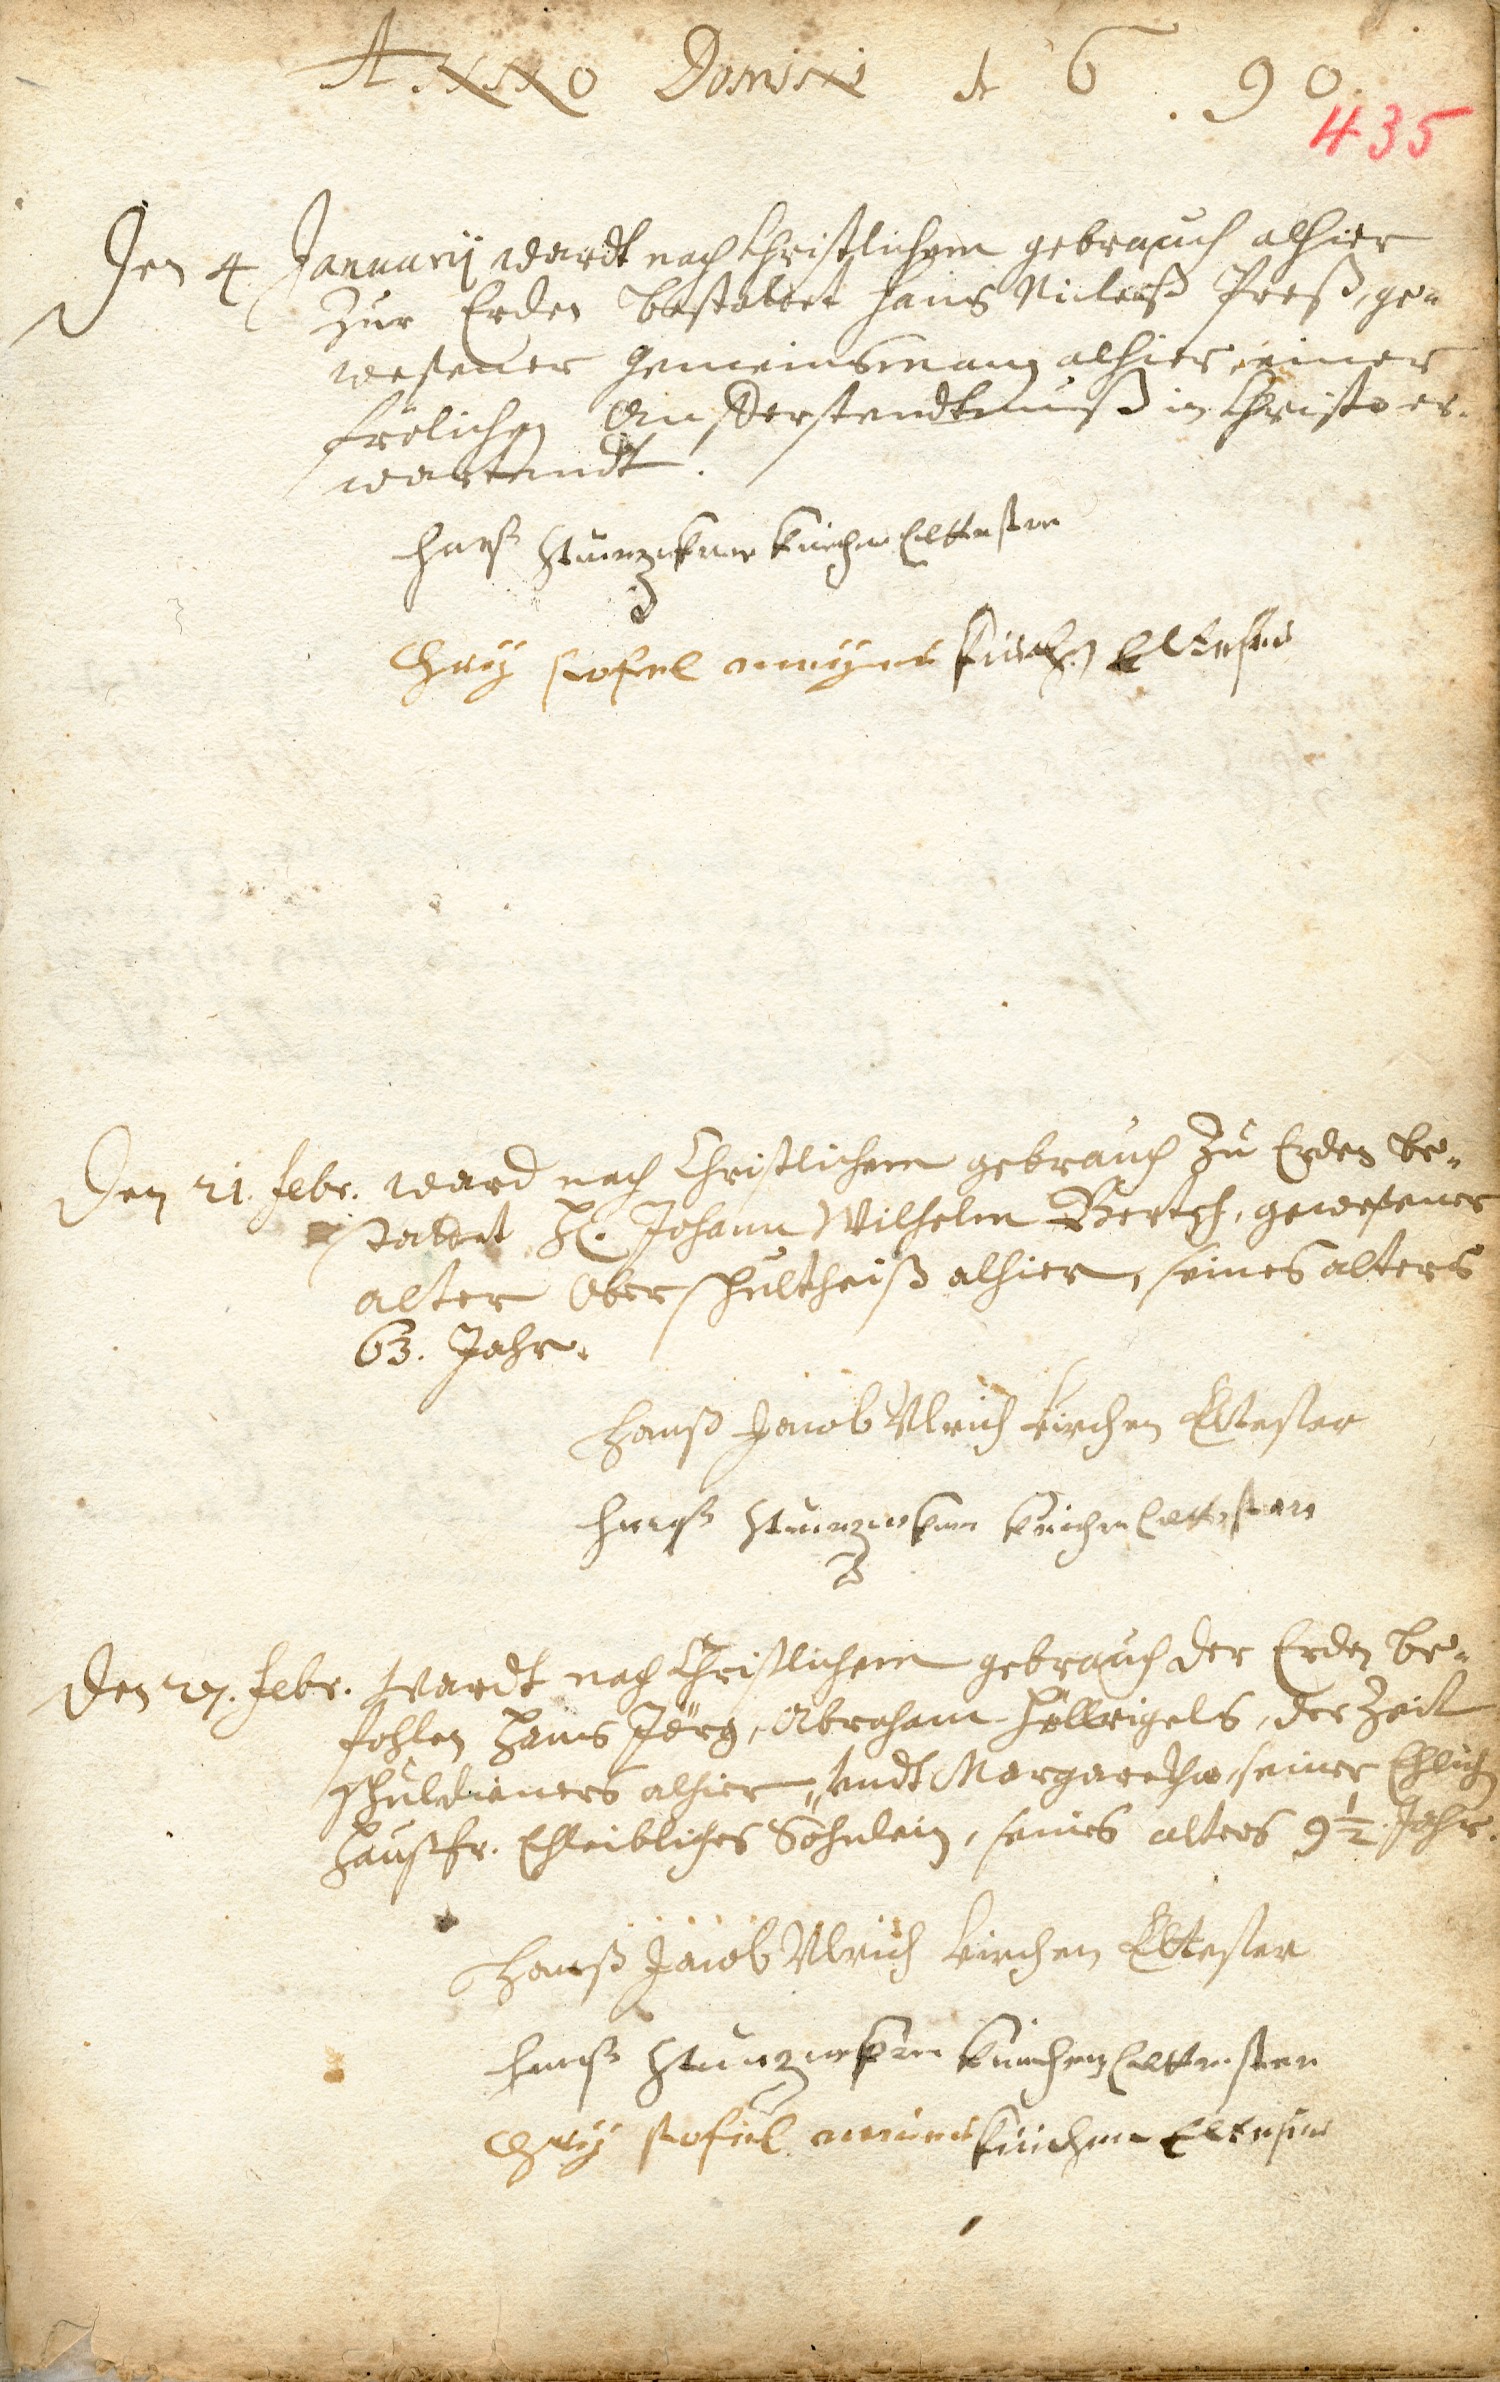 Anno Domini 1 6 . 9 0.
435
Den 4 Januarij wardt nach Christlichem gebrauch alhier
zur Erden bestattet Hans Niclaß Preß, ge=
wesener Gemeinsmann alhier, einer
frölichen Aufferstendtnuß in Christo er=
wartendt.
Hanß kirchen Elttester
Christofel kirchen Eltester
Den 21. Febr. ward nach Christlichem gebrauch zu Erden be=
stattet H. Johann Wilhelm Bertsch, gewesener
alter Oberschultheiß alhier, seines alters
63. Jahr.
Hanß Jacob Ulrich kirchen Eltester
Hanß kirchen Elttester
Den 27. Febr. wardt nach Christlichem gebrauch der Erden be=
fohlen Hans Jörg, Abraham Hellrigels, der Zeit
schuldieners alhier, undt Margaretha, seiner Ehlich
Haußfr. Ehleibliches Söhnlein, seines alters 9 1/2. Jahr.
Hanß Jacob Ulrich kirchen Eltester
Hanß kirchen Elttester
Christofel kirchen Eltester